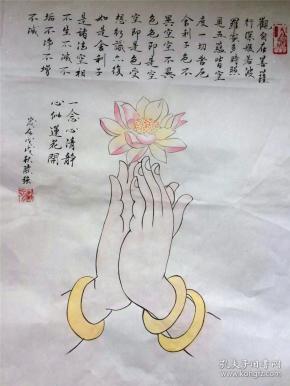 觀自在菩薩
行深般若波
羅蜜多時照
見五蘊皆空
度一切苦厄
舍利子色不
異空空不異
色色即是空
空即是色受
想行識亦復
如是舍利子
是諸法空相
不生不滅不
垢不淨不增
不減
一念心清静
心似蓮花開
戊戌秋
孔夫子旧书网